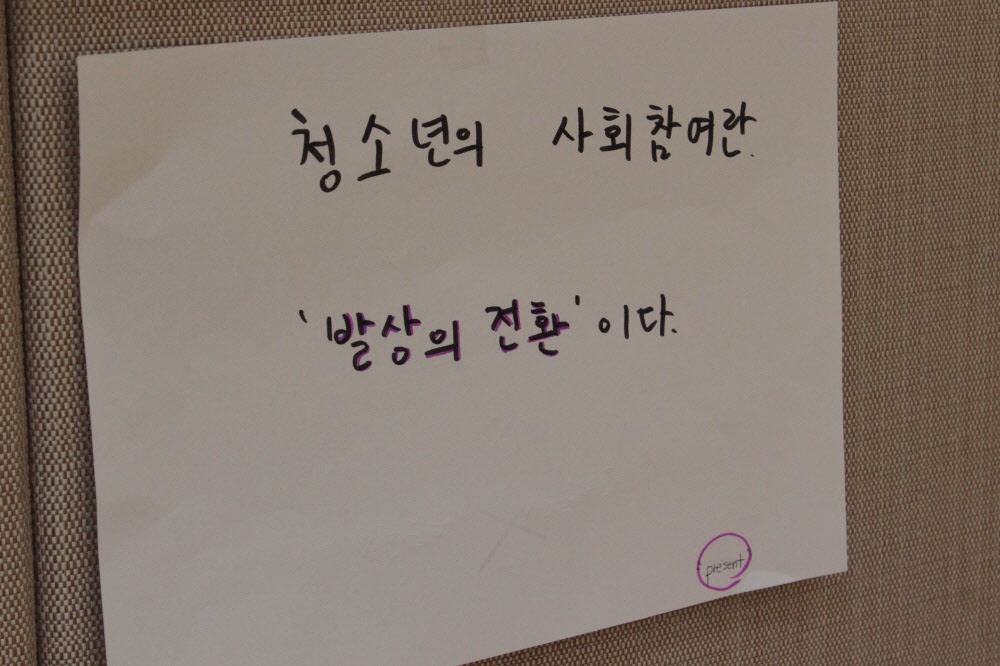 청소년의 사회참여란.
'발상의 전환'이다.
present